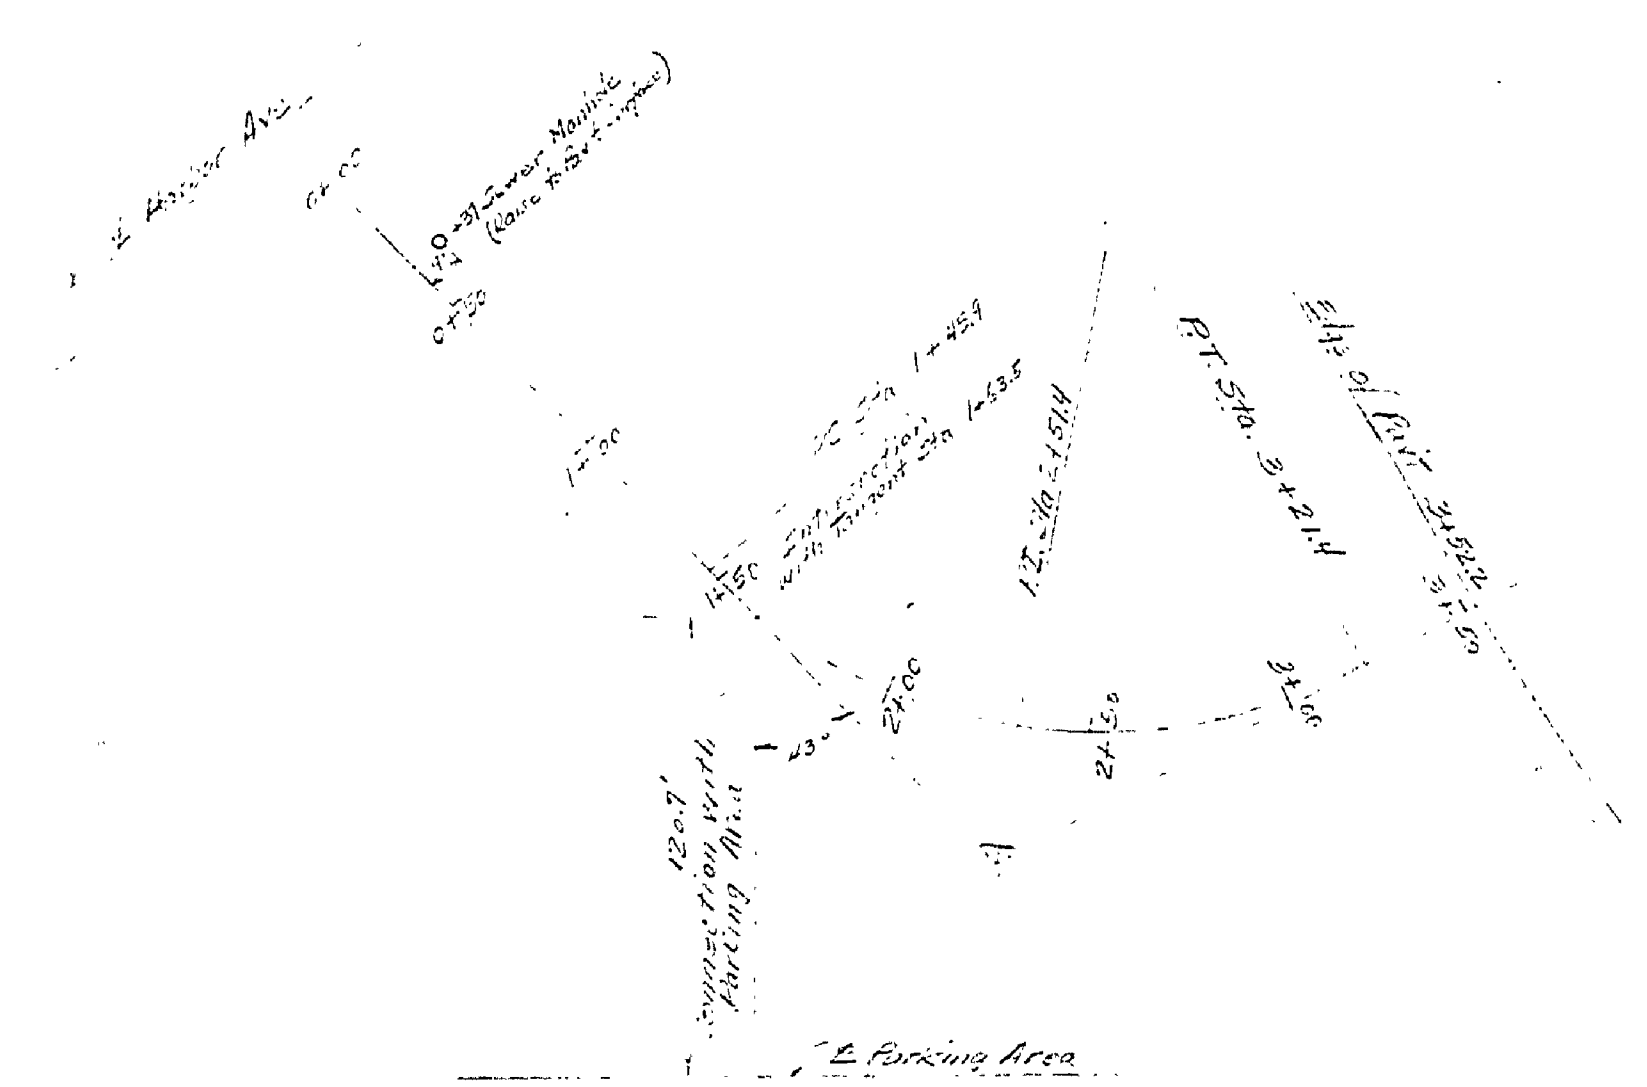 ℄ Harbor Ave.
0+00
0+37 Sewer Manhole
(Raise to Pav't surface)
0+50
1+00
PC Sta 1+45.9
Intersection
with Tangent Sta 1+63.5
1+50
P.I. Sta 2+51.4
P.T. Sta. 3+21.4
Edge of Pav't 3+52.2
3+50
2+00
2+50
3+00
43°
120.7'
Connection with
Parking Area
℄ Parking Area